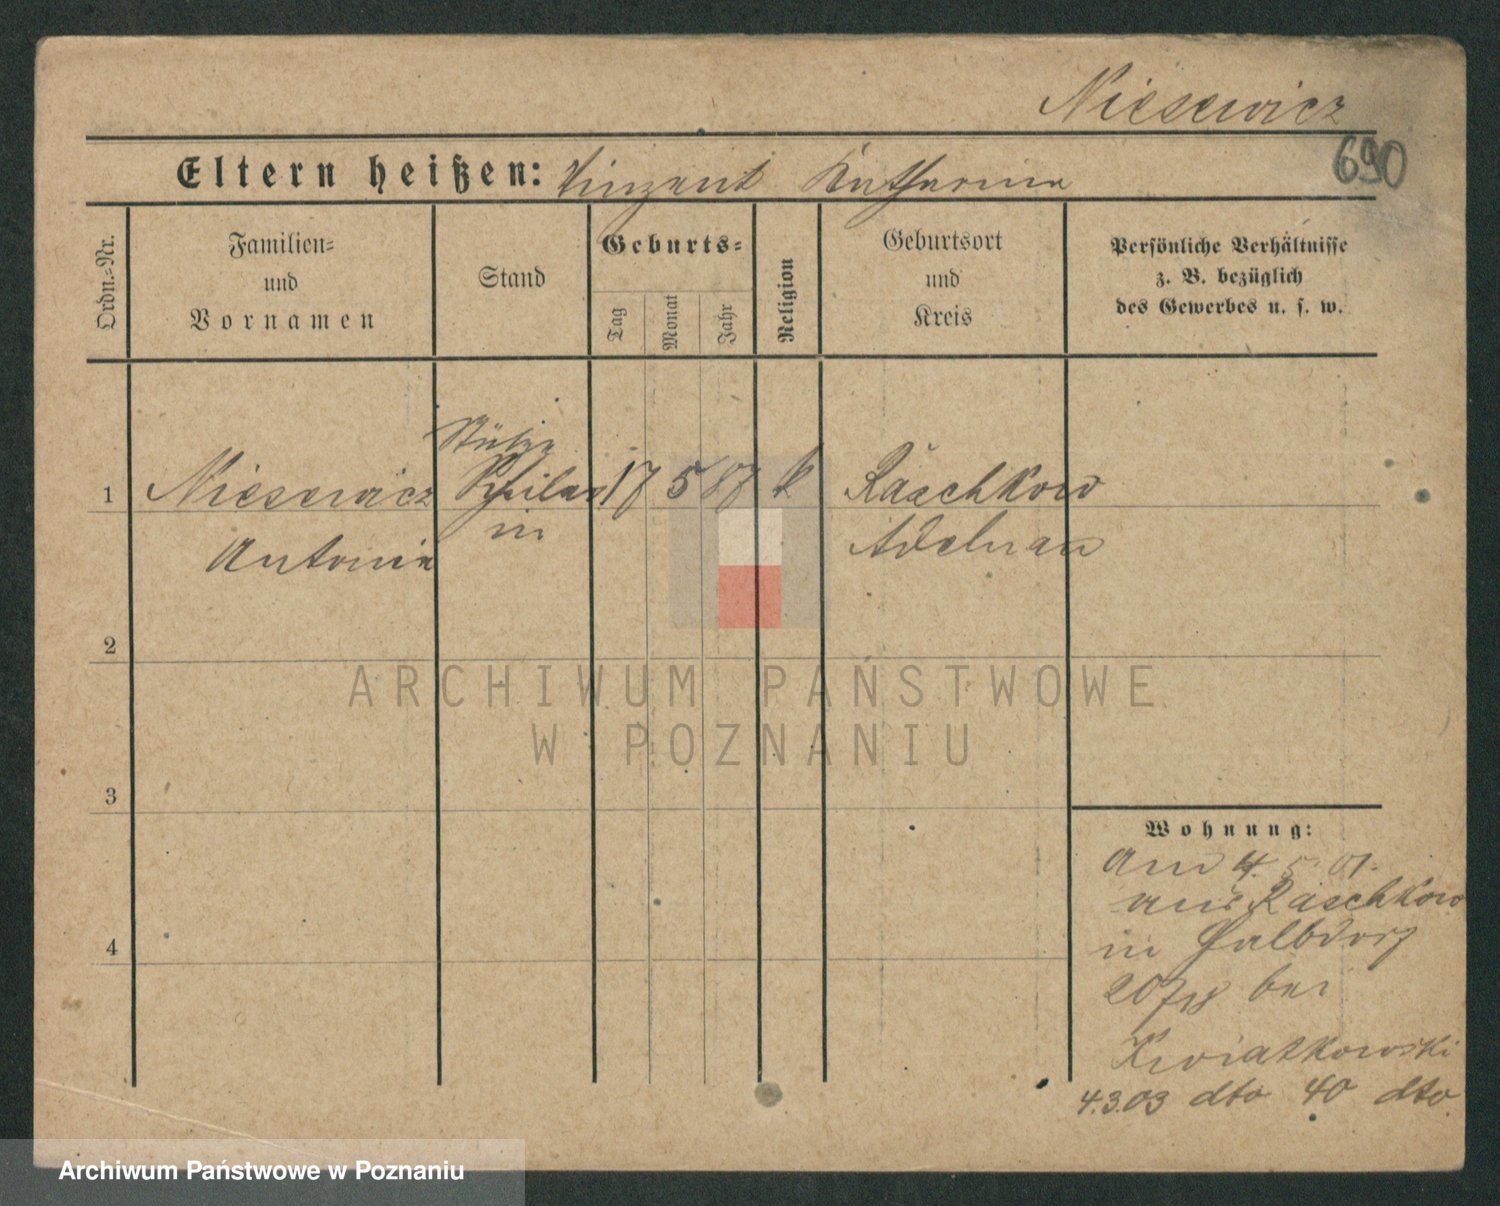 Niesewicz
690
Eltern heißen: Vinzent Katharina
Ordn.-Nr.
Familien-
und
Vornamen
Stand
Geburts-
Tag
Monat
Jahr
Religion
Geburtsort
und
Kreis
Persönliche Verhältnisse
z. B. bezüglich
des Gewerbes u. s. w.
Stütze
1 Niesewicz Schüler 17 5 87 k Raschkow
in
Antonie Adelnau
2
ARCHIWUM PAŃSTWOWE
W POZNANIU
3
Wohnung:
4
4. 5. 01.
aus Raschkow
in Halbdorf
20 bei
Kwiatkowski
4.3.03 dto 40 dto
Archiwum Państwowe w Poznaniu